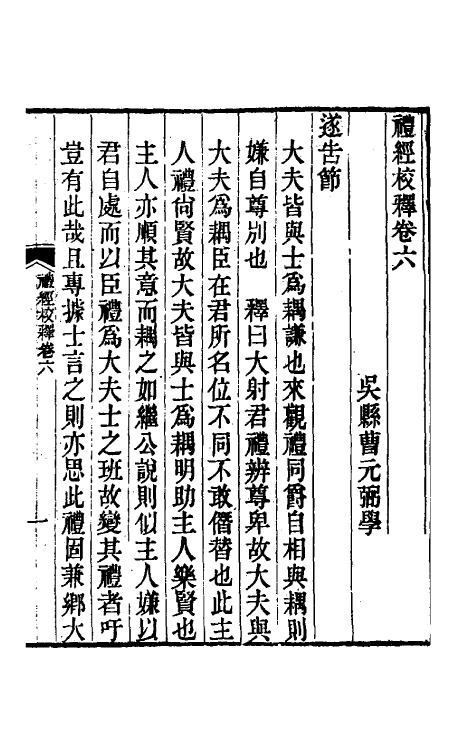 禮經校釋卷六
吳縣曹元弼學
遂告節
大夫皆與士為耦謙也來觀禮同爵自相與耦則
嫌自尊別也　釋曰大射君禮辨尊卑故大夫與
大夫為耦臣在君所名位不同不敢僭替也此主
人禮尙賢故大夫皆與士為耦明助主人樂賢也
主人亦順其意而耦之如繼公說則似主人嫌以
君自處而以臣禮為大夫士之班故變其禮者吁
豈有此哉且專據士言之則亦思此禮固兼鄉大
禮經校釋卷六
一